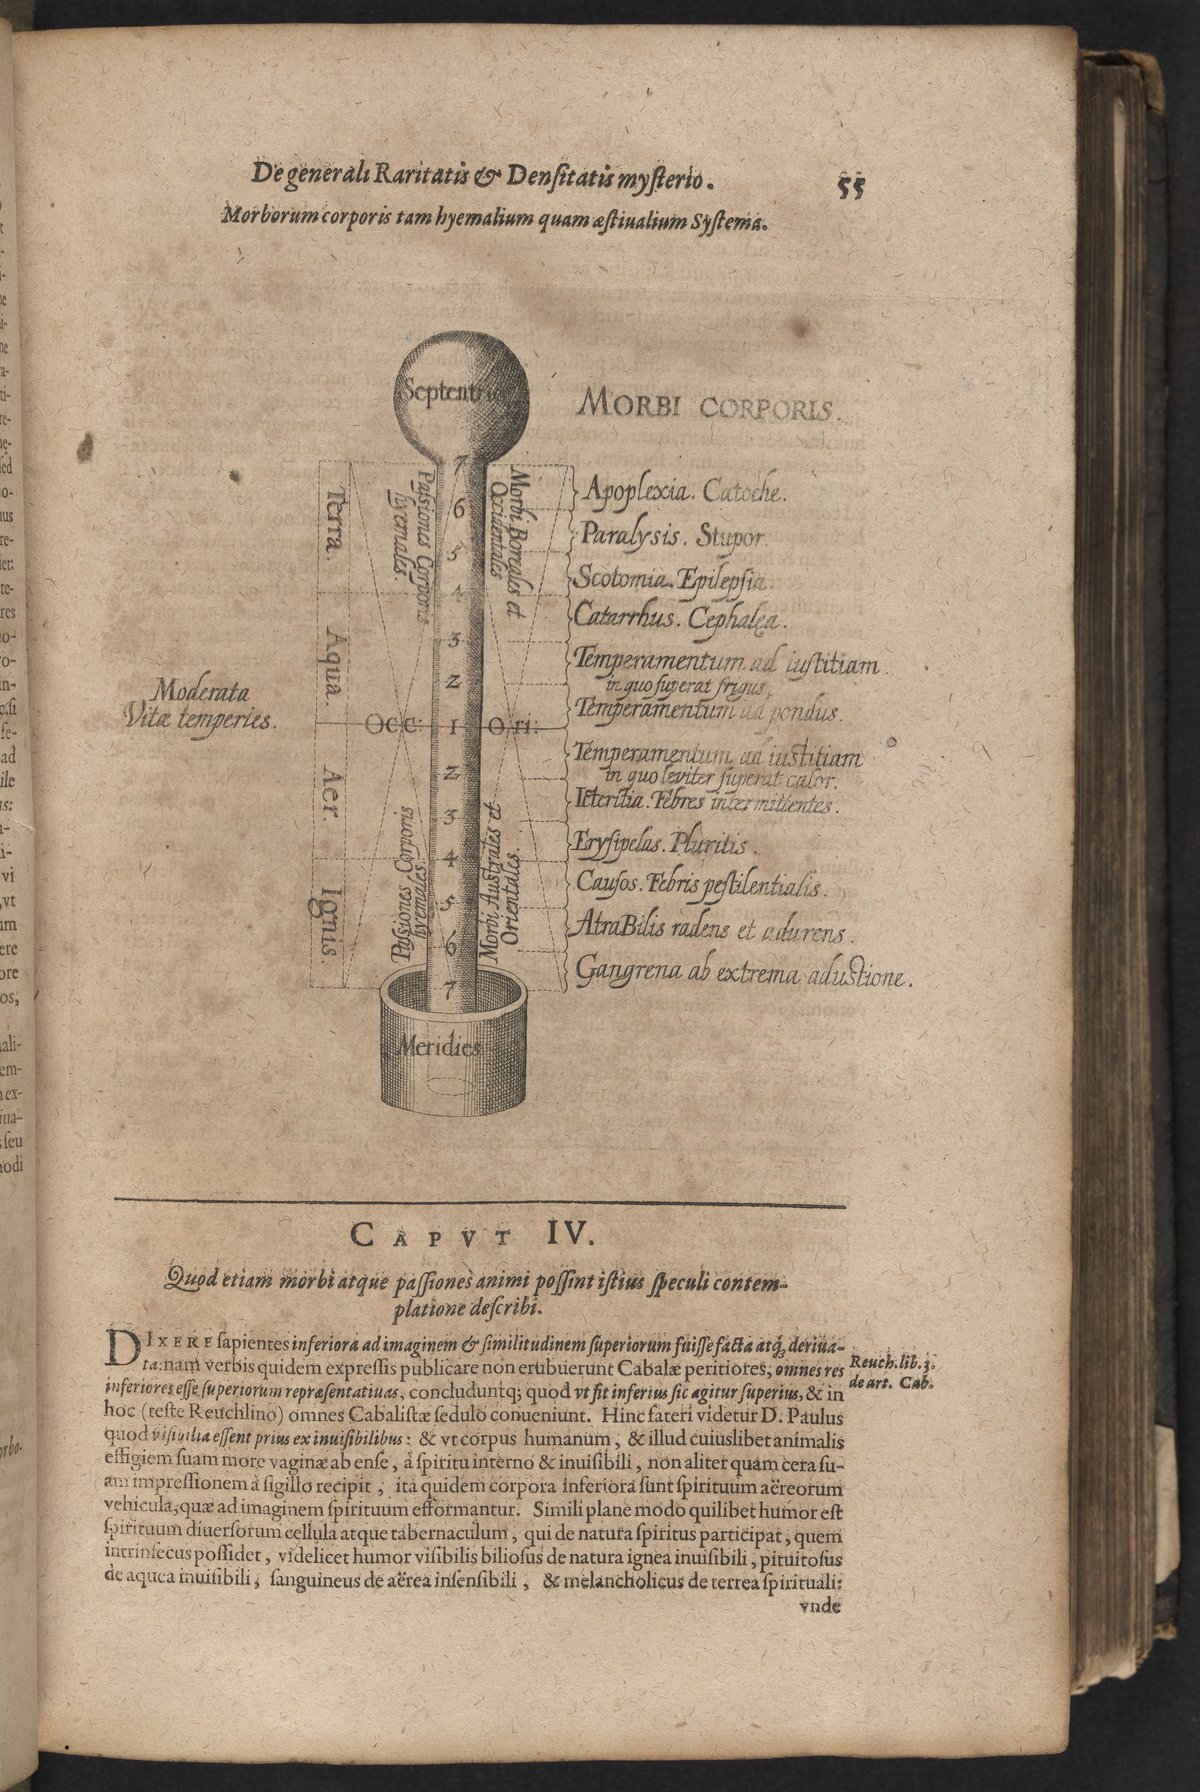 De generali Raritatis & Densitatis mysterio. 55
Morborum corporis tam hyemalium quam æstiualium Systema.
Septentrio
MORBI CORPORIS.
Terra.
Aqua.
Aer.
Ignis.
Passiones Corporis
hyemales.
Morbi Boreales et
Occidentales
7
6
5
4
3
2
1
2
3
4
5
6
7
Apoplexia. Catoche.
Paralysis. Stupor.
Scotomia. Epilepsia
Catarrhus. Cephalea.
Temperamentum ad iustitiam
in quo superat frigus,
Temperamentum ad pondus.
Moderata
Vitæ temperies.
Occ:
Ori:
Temperamentum ad iustitiam
in quo leviter superat calor.
Icteritia. Febres intermittentes.
Erysipelas. Pluritis.
Causos. Febris pestilentialis.
Atra Bilis radens et adurens.
Gangrena ab extrema adustione.
Passiones Corporis
hyemales.
Morbi Australes et
Orientales.
Meridies
CAPVT IV.
Quod etiam morbi atque passiones animi possint istius speculi contem-
platione describi.
DIXERE sapientes inferiora ad imaginem & similitudinem superiorum fuisse facta atq; deriua-
ta: nam verbis quidem expressis publicare non erubuerunt Cabalæ peritiores, omnes res
inferiores esse superiorum repræsentatiuas, concluduntq; quod vt fit inferius sic agitur superius, & in
hoc (teste Reuchlino) omnes Cabalistæ sedulo conueniunt. Hinc fateri videtur D. Paulus
quod visibilia essent prius ex inuisibilibus: & vt corpus humanum, & illud cuiuslibet animalis
effigiem suam more vaginæ ab ense, à spiritu interno & inuisibili, non aliter quam cera su-
am impressionem à sigillo recipit, ita quidem corpora inferiora sunt spirituum aëreorum
vehicula, quæ ad imaginem spirituum efformantur. Simili plane modo quilibet humor est
spirituum diuersorum cellula atque tabernaculum, qui de natura spiritus participat, quem
intrinsecus possidet, videlicet humor visibilis biliosus de natura ignea inuisibili, pituitosus
de aquea inuisibili, sanguineus de aërea insensibili, & melancholicus de terrea spirituali:
vnde
Reuch. lib. 3.
de art. Cab.